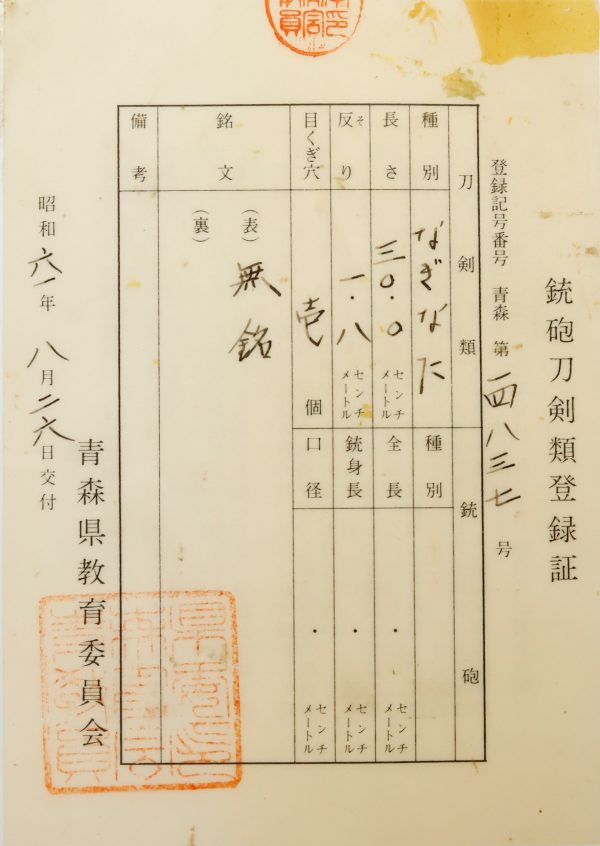 銃砲刀剣類登録証
登録記号番号 青森 第 一四八三七 号
刀剣類 銃砲
種別 なぎなた 種別
長さ 三〇.〇 センチメートル 全長 ・ センチメートル
反り そ 一.八 センチメートル 銃身長 ・ センチメートル
目くぎ穴 壱 個 口径 ・ センチメートル
銘文 (表) 無銘
(裏)
備考
昭和 六一 年 八 月 二六 日交付
青森県教育委員会